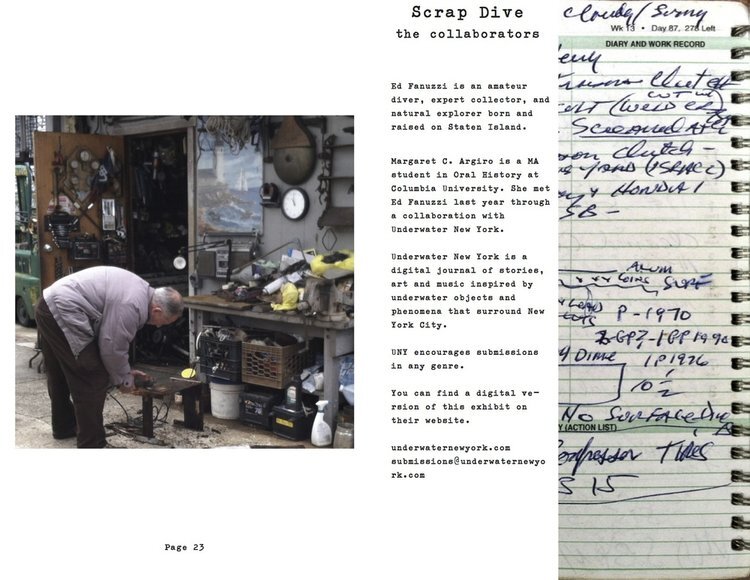 Scrap Dive
the collaborators
Ed Fanuzzi is an amateur
diver, expert collector, and
natural explorer born and
raised on Staten Island.
Margaret C. Argiro is a MA
student in Oral History at
Columbia University. She met
Ed Fanuzzi last year through
a collaboration with
Underwater New York.
Underwater New York is a
digital journal of stories,
art and music inspired by
underwater objects and
phenomena that surround New
York City.
UNY encourages submissions
in any genre.
You can find a digital ve-
rsion of this exhibit on
their website.
underwaternewyork.com
submissions@underwaternewyo
rk.com
Page 23
Cloudy/Sunny
Wk 13 • Day 87, 278 Left
DIARY AND WORK RECORD
Clutch
Clutch -
HONDA
SB -
ALUM
COINS SURF
P-1970
DIME 1P1976
10 1/2
No SURFACE
Y (ACTION LIST)
TIRES
S 15